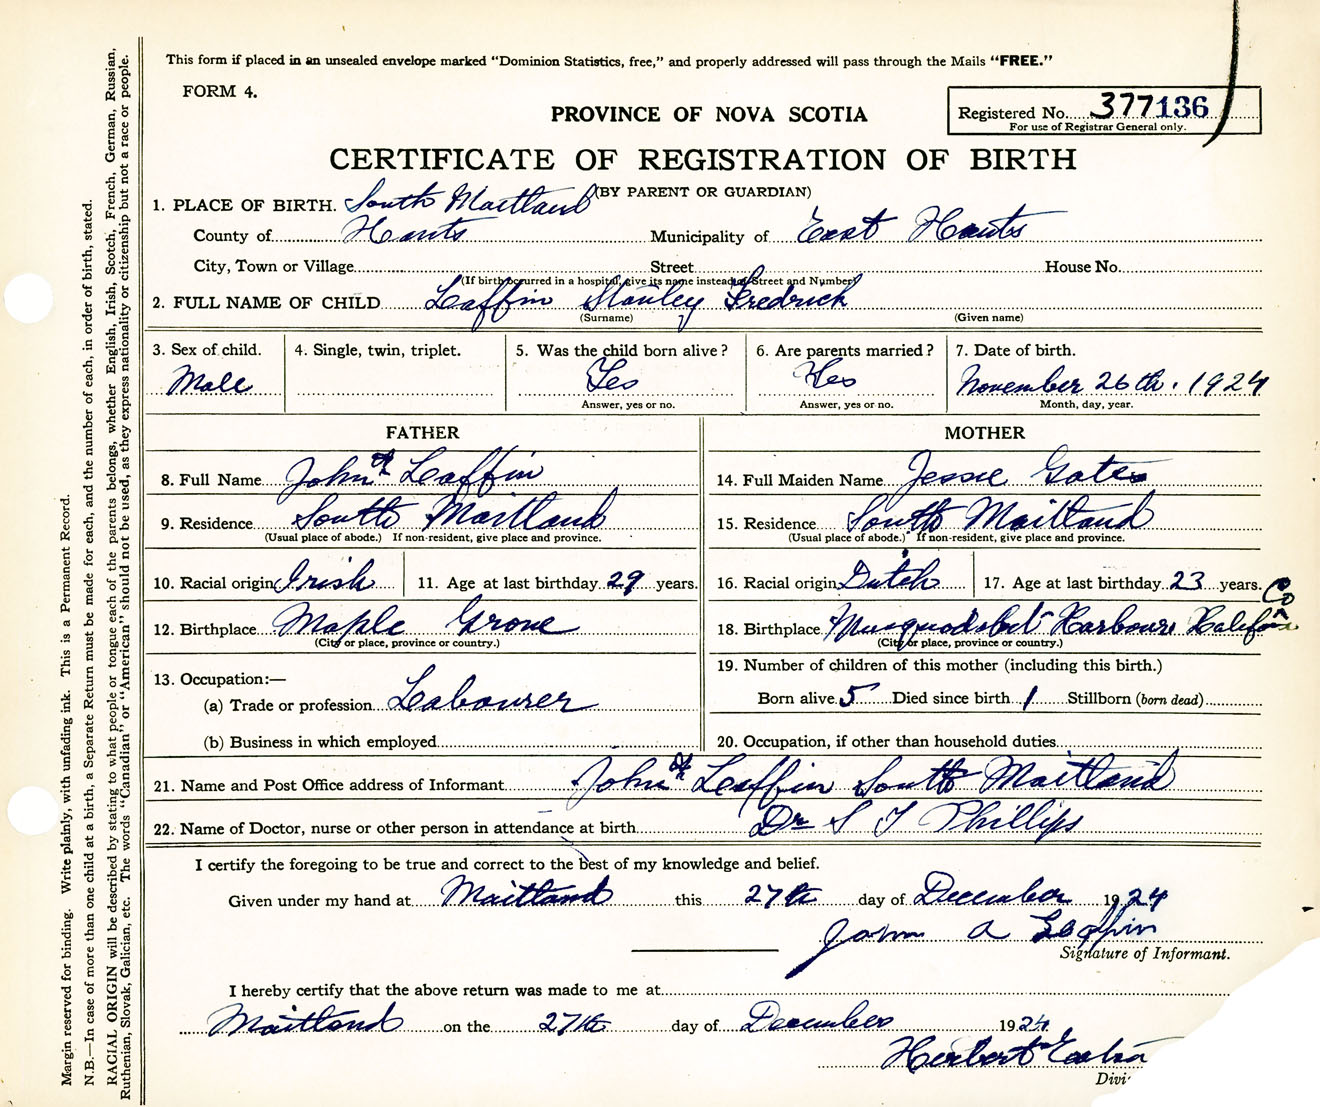 This form if placed in an unsealed envelope marked "Dominion Statistics, free," and properly addressed will pass through the Mails "FREE."
FORM 4.
PROVINCE OF NOVA SCOTIA
Registered No. 377136
For use of Registrar General only.
CERTIFICATE OF REGISTRATION OF BIRTH
(BY PARENT OR GUARDIAN)
1. PLACE OF BIRTH. South Maitland
County of Hants Municipality of East Hants
City, Town or Village Street House No.
(If birth occurred in a hospital, give its name instead of Street and Number)
2. FULL NAME OF CHILD Laffin Stanley Fredrick
(Surname) (Given name)
3. Sex of child. 4. Single, twin, triplet. 5. Was the child born alive? 6. Are parents married? 7. Date of birth.
Male Yes Yes November 26th. 1924
Answer, yes or no. Answer, yes or no. Month, day, year.
FATHER MOTHER
8. Full Name John A Laffin 14. Full Maiden Name Jessie Gates
9. Residence South Maitland 15. Residence South Maitland
(Usual place of abode.) If non-resident, give place and province. (Usual place of abode.) If non-resident, give place and province.
10. Racial origin Irish 11. Age at last birthday 29 years. 16. Racial origin Dutch 17. Age at last birthday 23 years.
12. Birthplace Maple Grove 18. Birthplace Musquodobit Harbour Halifax Co
(City or place, province or country.) (City or place, province or country.)
13. Occupation:— 19. Number of children of this mother (including this birth.)
(a) Trade or profession Labourer Born alive 5 Died since birth 1 Stillborn (born dead)
(b) Business in which employed 20. Occupation, if other than household duties
21. Name and Post Office address of Informant John A Laffin South Maitland
22. Name of Doctor, nurse or other person in attendance at birth Dr S T Phillips
I certify the foregoing to be true and correct to the best of my knowledge and belief.
Given under my hand at Maitland this 27th day of December 1924
John A Laffin
Signature of Informant.
I hereby certify that the above return was made to me at
Maitland on the 27th day of December 1924
Herbert
Divi
Margin reserved for binding. Write plainly, with unfading ink. This is a Permanent Record.
N.B.—In case of more than one child at a birth, a Separate Return must be made for each, and the number of each, in order of birth, stated.
RACIAL ORIGIN will be described by stating to what people or tongue each of the parents belongs, whether English, Irish, Scotch, French, German, Russian,
Ruthenian, Slovak, Galician, etc. The words "Canadian" or "American" should not be used, as they express nationality or citizenship but not a race or people.